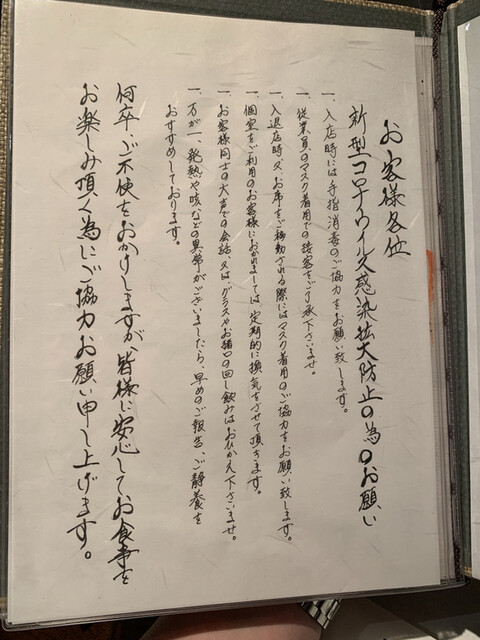 お客様各位
新型コロナウイルス感染拡大防止の為のお願い
一、入店時には手指消毒のご協力をお願い致します。
一、従業員のマスク着用での接客をご了承下さいませ。
一、入退店時又、お席をご移動される際にはマスク着用のご協力をお願い致します。
一、個室をご利用のお客様におかれましては、定期的に換気をさせて頂きます。
一、お客様同士の大声での会話、又は、グラスやお猪口の回し飲みはお控え下さいませ。
一、万が一、発熱や咳などの異常がございましたら、早めのご報告、ご静養を
おすすめしております。
何卒、ご不便をおかけしますが皆様に安心してお食事を
お楽しみ頂く為にご協力お願い申し上げます。